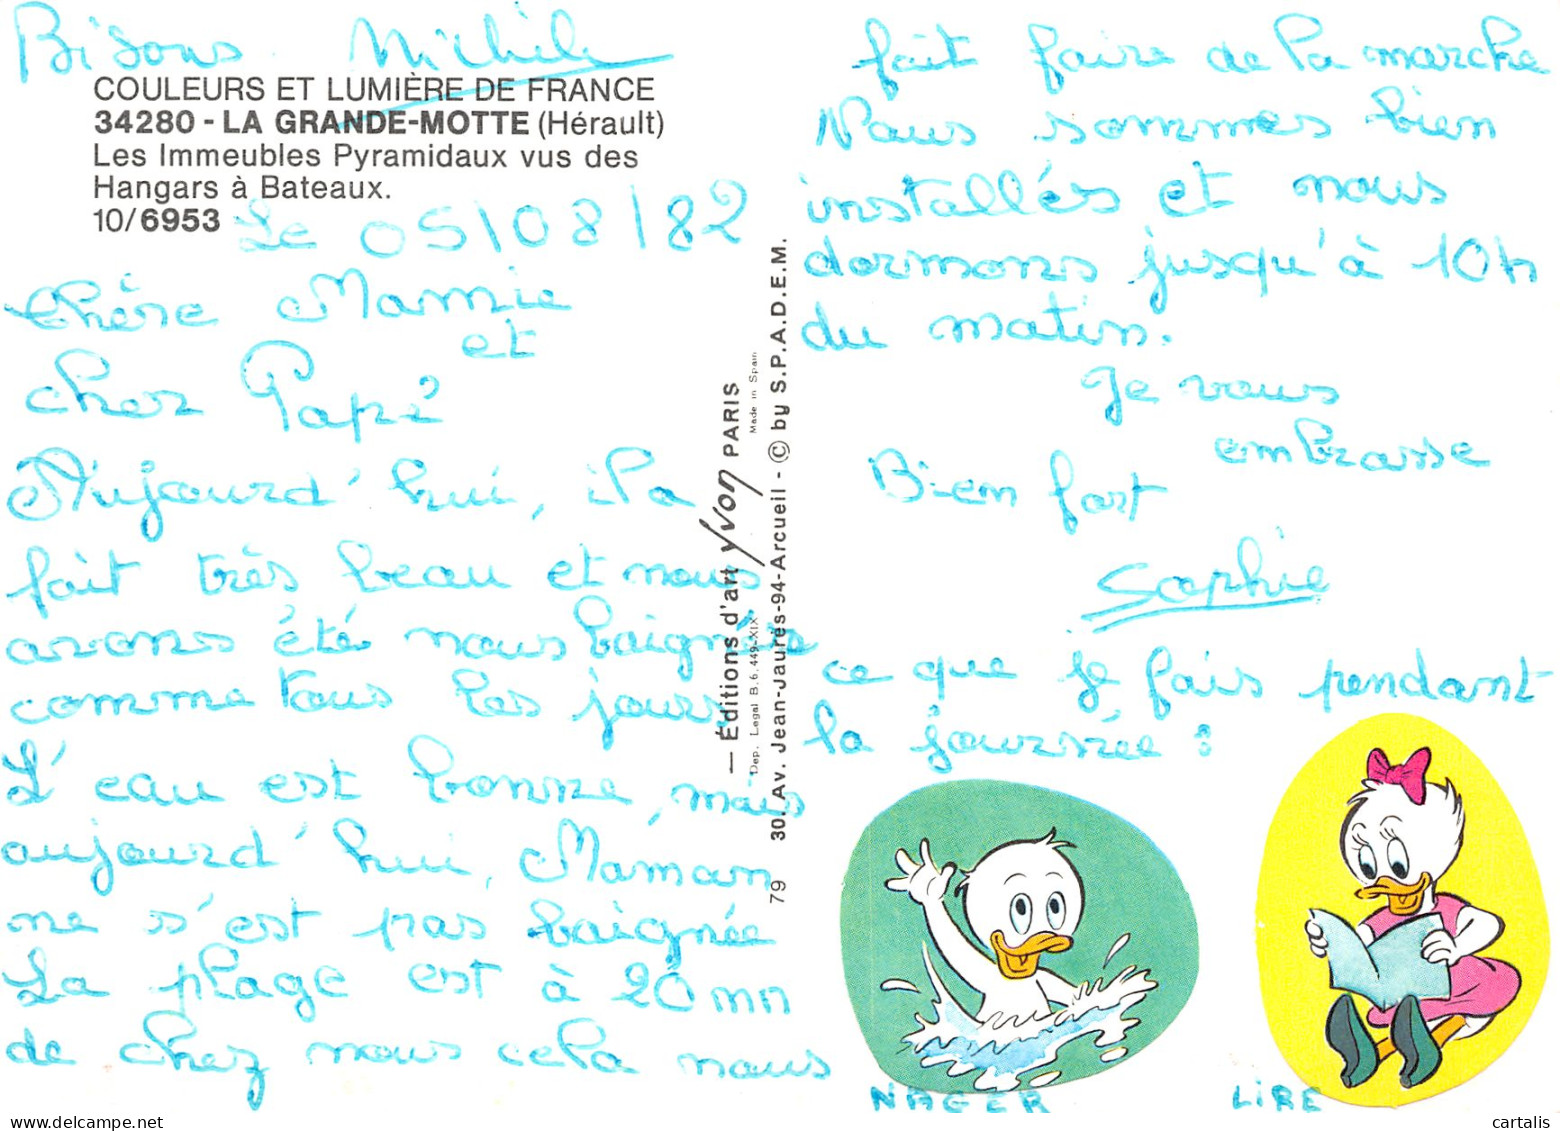 Bisous Michèle
COULEURS ET LUMIÈRE DE FRANCE
34280 - LA GRANDE-MOTTE (Hérault)
Les Immeubles Pyramidaux vus des
Hangars à Bateaux.
10/6953
Le 05/08/82
Chère Mamie
et
cher Papi
Aujourd'hui, il a
fait très beau et nous
avons été nous baignés
comme tous les jours
L'eau est bonne, mais
aujourd'hui, Maman
ne s'est pas baignée
La plage est à 20 mn
de chez nous cela nous
— Éditions d'art Yvon PARIS
Made in Spain
Dep. Legal B.6.449-XIX
30, Av. Jean-Jaurès-94-Arcueil - © by S.P.A.D.E.M.
79
fait faire de la marche
Nous sommes bien
installés et nous
dormons jusqu'à 10h
du matin.
Je vous
embrasse
Bien fort
Sophie
ce que je fais pendant
la journée :
NAGER
LIRE
www.cartalis.com
cartalis